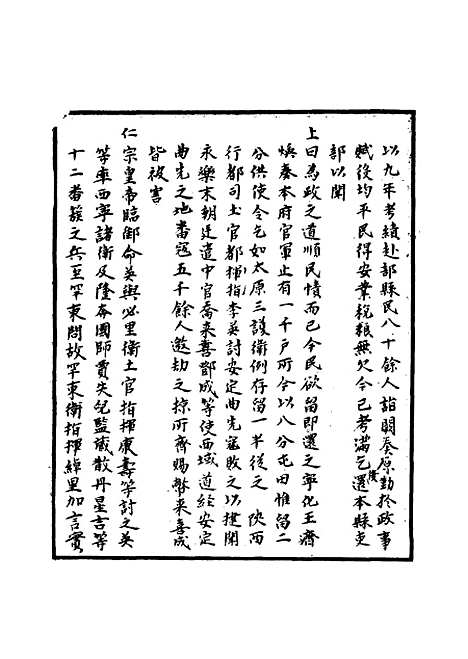 以九年考績赴部縣民八十餘人詣闕奏原勤於政事
賦役均平民得安業稅粮無欠今已考滿乞還本縣吏
復
部以聞
上曰為政之道順民情而已今民欲留即還之寧化王濟
煥奏本府官軍止有一千戶所今以八分屯田惟留二
分供使令乞如太原三護衛例存留一半從之　陝西
行都司土官都指揮李英討安定曲先寇敗之以捷聞
永樂末朝廷遣中官喬來喜鄧成等使西域道經安定
曲先之地番寇五千餘人邀劫之掠所齎賜幣來喜成
皆被害
仁宗皇帝臨御命英與必里衛土官指揮康壽等討之英
等率西寧諸衛及隆奔國師賈失兒監藏散丹星吉等
十二番簇之兵至罕東問故罕東衛指揮綽里加言實